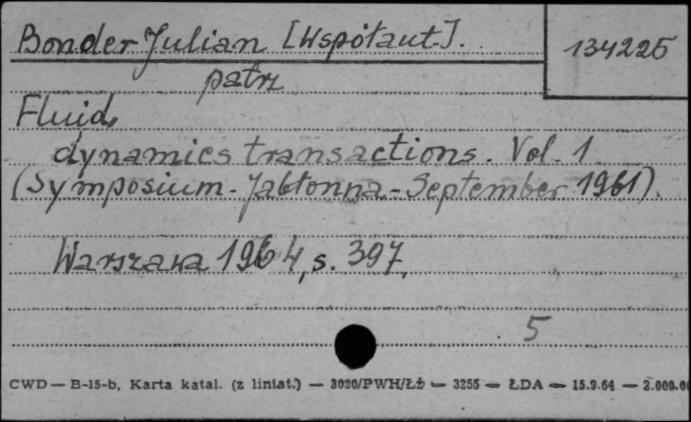 Bonder Julian [Współaut.].
134225
patrz
Fluid
dynamics transactions. Vol. 1
(Symposium - Jabłonna - September 1961).
Warszawa 1964, s. 397,
5
CWD — B-15-b, Karta katal. (z liniat.) — 3020/PWH/Łż — 3255 — ŁDA — 15.9.64 — 2.000.00